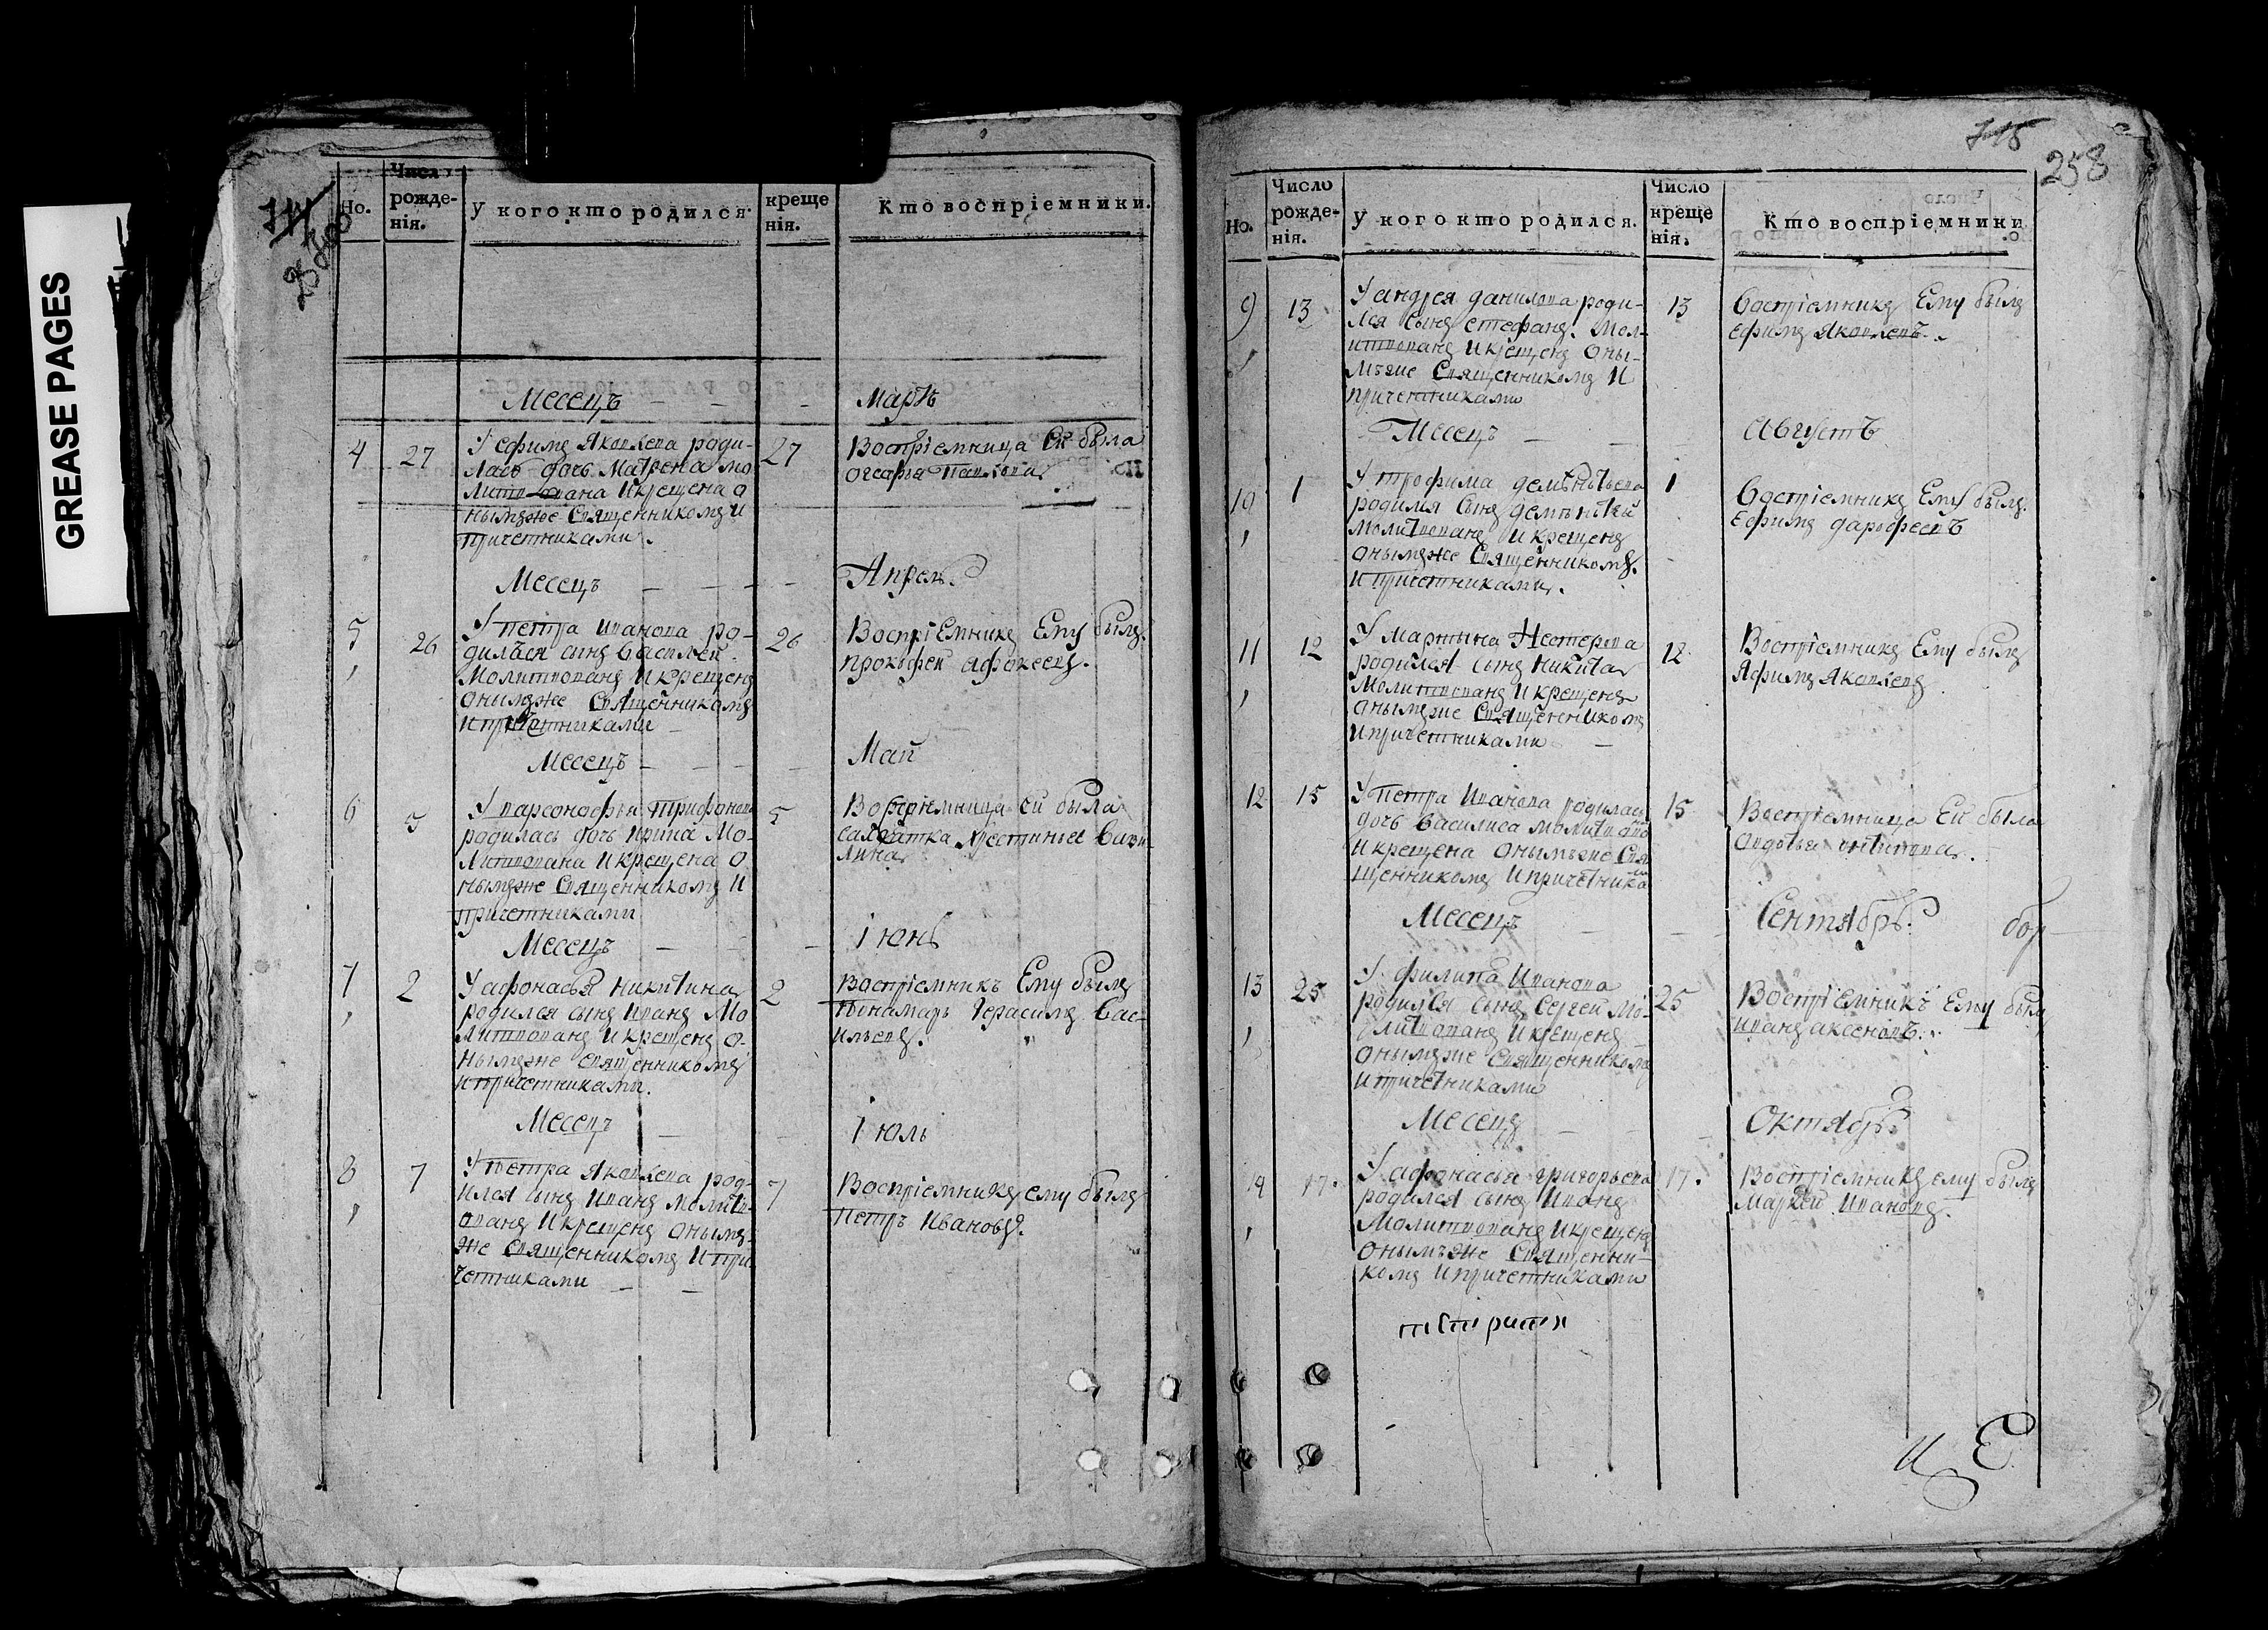 GREASE PAGES
Но.
Число рожденія.
У кого кто родился.
крещенія.
Кто воспріемники.
Месецъ
Мартъ
4
27
У ефима Яковлева роди-
лась дочь Матрена мо
литвована и крещена о
нымъже Священникомъ и
причетниками.
27
Воспріемница Ей была
павлова
Месецъ
Апрель
5
26
У петра иванова ро-
дился сынъ василей
Молитвованъ и крещенъ
онымъже Священникомъ
и причетниками
26
Воспріемникъ Ему былъ
прокофей
Месецъ
Май
6
5
У парфонофья трифонова
родилась дочь ирина Мо-
литвована и крещена о
нымъже Священникомъ и
причетниками
5
Воспріемница ей была
салдатка
Месецъ
Іюнь
7
2
У афонасья никитина
родился сынъ иванъ Мо
литвованъ и крещенъ о-
нымъже священникомъ
и причетниками.
2
Воспріемникъ Ему былъ
понамарь Герасимъ Вас-
ильевъ.
Месецъ
Іюль
8
7
У петра яковлева род-
ился сынъ иванъ молитв-
ованъ и крещенъ онымъ-
же Священникомъ и при
четниками
7
Воспріемникъ ему былъ
Петръ Ивановъ.
715
258
Но.
Число рожденія.
У кого кто родился.
Число крещенія.
Кто воспріемники
9
13
У андрея данилова роди-
лся сынъ стефанъ. Мол-
итвованъ и крещенъ оны-
мъже Священникомъ и
причетниками
13
Воспріемникъ Ему былъ
ефимъ Яковлевъ.
Месецъ
Августъ
10
1
У трофима дементьева
родился сынъ дементей
молитвованъ и крещенъ
онымъже Священникомъ.
и причетниками.
1
Воспріемникъ Ему былъ.
Ефимъ дарофеевъ
11
12
У мартына Нестерова
родился сынъ никита
Молитвованъ и крещенъ
онымъже Священникомъ
и причетниками
12
Воспріемникъ Ему былъ
Яфимъ Яковлевъ
12
15
У Петра Иванова родилась
дочь василиса молитвова
и крещена онымъже Свя
щенникомъ и причетника
ми
15
Воспріемница Ей была
овдотья онтипова.
Месецъ
Сентябрь.
13
25
У филипа Иванова
родился сынъ Сергей мо-
литвованъ и крещенъ
онымъже священникомъ
и причетниками
25
Воспріемникъ Ему былъ
иванъ аксеновъ.
Месецъ
Октябрь
14
17.
У афонасья григорьева
родился сынъ иванъ
Молитвованъ и крещенъ
онымъже Священни-
комъ и причетниками
17.
Воспріемникъ ему былъ
Маркей ивановъ.